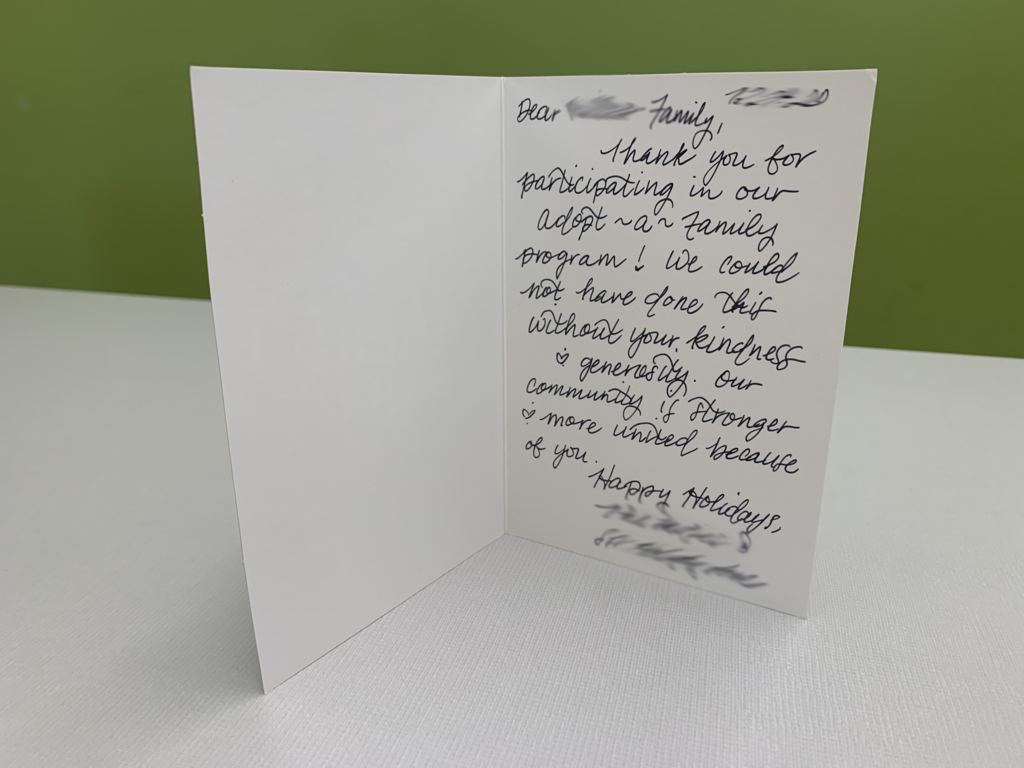 Dear Family,
Thank you for
participating in our
adopt ~a~ Family
program! We could
not have done this
without your kindness
& generosity. Our
community is stronger
& more united because
of you.
Happy Holidays,